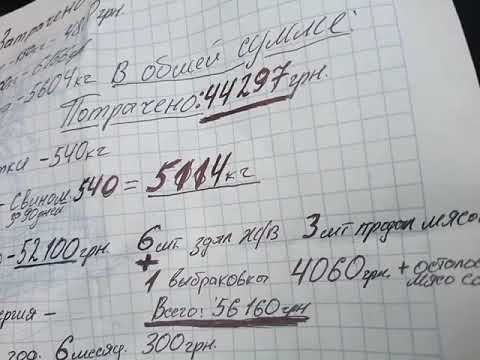 Затрачено
- 48 грн.
- 5604 кг
В общей сумме:
Потрачено: 44297 грн.
тки - 540 кг
- Свином. 540 = 5114 кг
за 90 дней
- 52100 грн 6 шт здал ж/в 3 шт продал мясо
+
1 выбраковка 4060 грн + осталось
мясо со
Всего: 56160 грн
ергия -
год. 6 месяц. 300 грн.